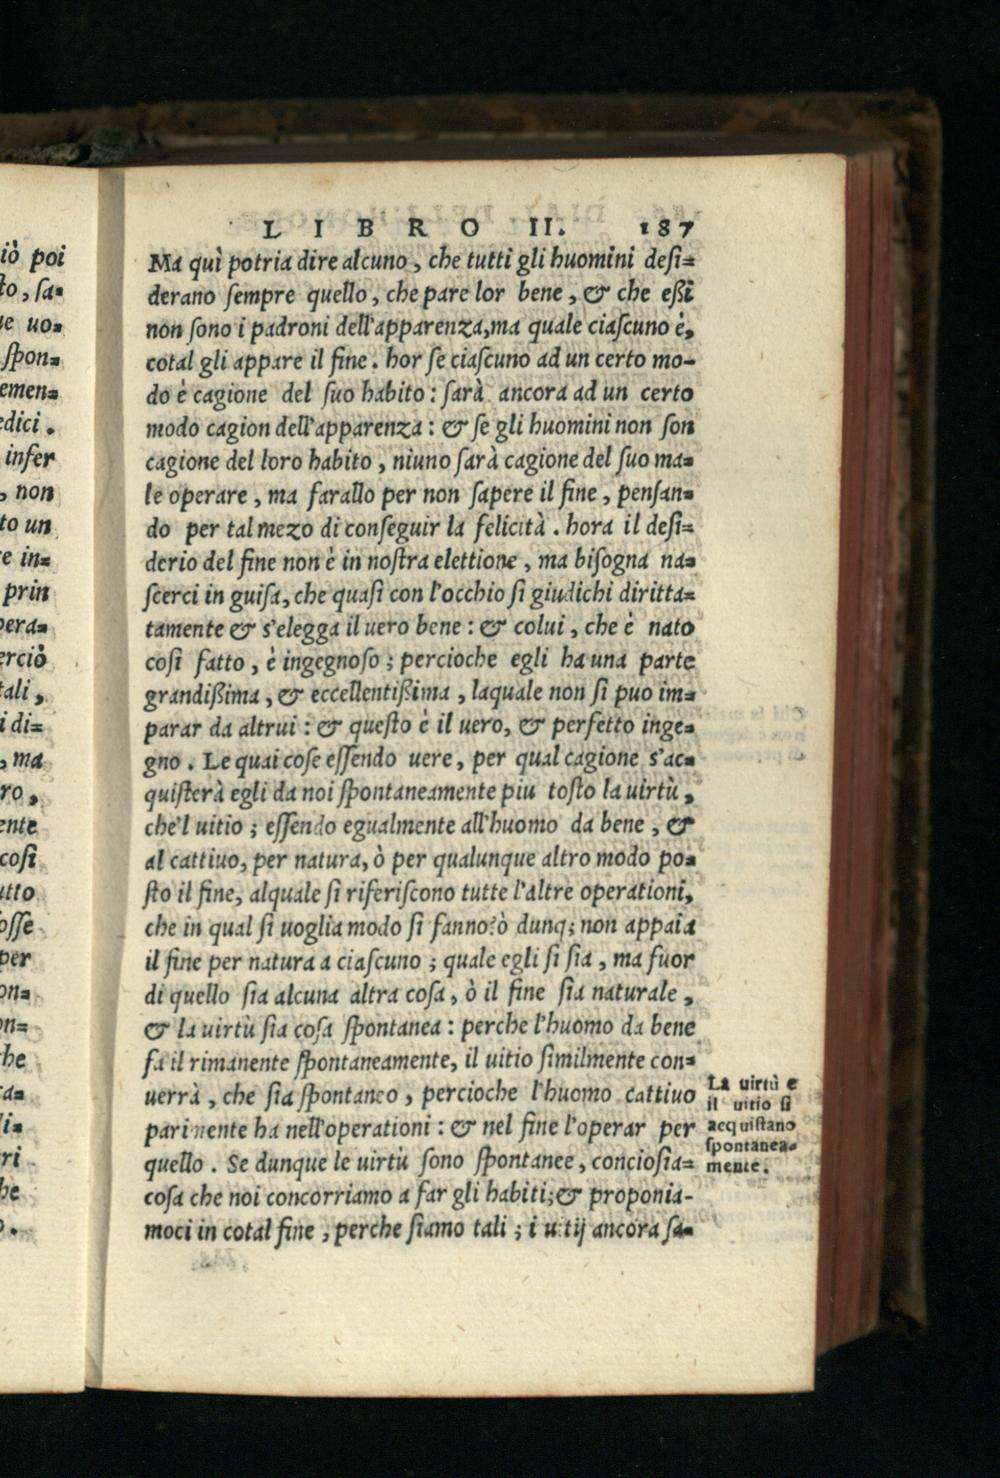 iò poi
to, sa=
ue uo=
spon=
emen=
edici.
infer
, non
to un
e in=
prin
pera=
erciò
tali,
i di=
, ma
ro,
ente
cosi
utto
osse
per
on=
on=
che
ca=
li=
ri
he
o.
LIBRO II. 187
Ma quì potria dire alcuno, che tutti gli huomini desi=
derano sempre quello, che pare lor bene, & che eßi
non sono i padroni dell'apparenza, ma quale ciascuno è,
cotal gli appare il fine. hor se ciascuno ad un certo mo-
do è cagione del suo habito: sarà ancora ad un certo
modo cagion dell'apparenza: & se gli huomini non son
cagione del loro habito, niuno sarà cagione del suo ma=
le operare, ma farallo per non sapere il fine, pensan=
do per tal mezo di conseguir la felicità. hora il desi=
derio del fine non è in nostra elettione, ma bisogna na=
scerci in guisa, che quasi con l'occhio si giudichi diritta=
tamente & s'elegga il uero bene: & colui, che è nato
cosi fatto, è ingegnoso; percioche egli ha una parte
grandißima, & eccellentißima, laquale non si puo im=
parar da altrui: & questo è il uero, & perfetto inge=
gno. Le quai cose essendo uere, per qual cagione s'ac=
quisterà egli da noi spontaneamente piu tosto la uirtù,
che'l uitio; essendo egualmente all'huomo da bene, &
al cattiuo, per natura, ò per qualunque altro modo po=
sto il fine, alquale si riferiscono tutte l'altre operationi,
che in qual si uoglia modo si fanno? ò dunq; non appaia
il fine per natura a ciascuno; quale egli si sia, ma fuor
di quello sia alcuna altra cosa, ò il fine sia naturale,
& la uirtù sia cosa spontanea: perche l'huomo da bene
fa il rimanente spontaneamente, il uitio similmente con=
uerrà, che sia spontaneo, percioche l'huomo cattiuo
parimente ha nell'operationi: & nel fine l'operar per
quello. Se dunque le uirtù sono spontanee, conciosia=
cosa che noi concorriamo a far gli habiti; & proponia-
moci in cotal fine, perche siamo tali; i uitij ancora sa=
La uirtù e
il uitio si
acquistano
spontanea=
mente.